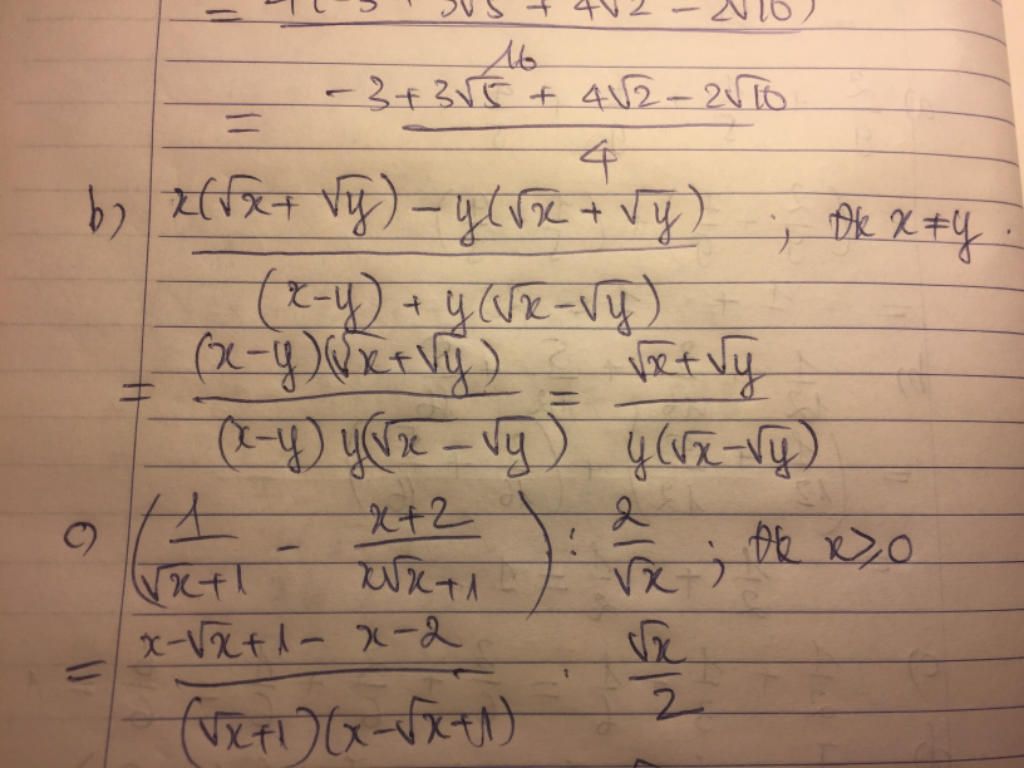 = 4(-3 + 3√5 + 4√2 - 2√10) / 16
= (-3 + 3√5 + 4√2 - 2√10) / 4
b) (x(√x + √y) - y(√x + √y)) / ((x-y) + y(√x - √y)) ; Đk x ≠ y.
= ((x-y)(√x + √y)) / ((x-y) y(√x - √y)) = (√x + √y) / (y(√x - √y))
c) (1 / (√x + 1) - (x+2) / (x√x + 1)) : 2 / √x ; Đk x ≥ 0
= (x - √x + 1 - x - 2) / ((√x + 1)(x - √x + 1)) . √x / 2